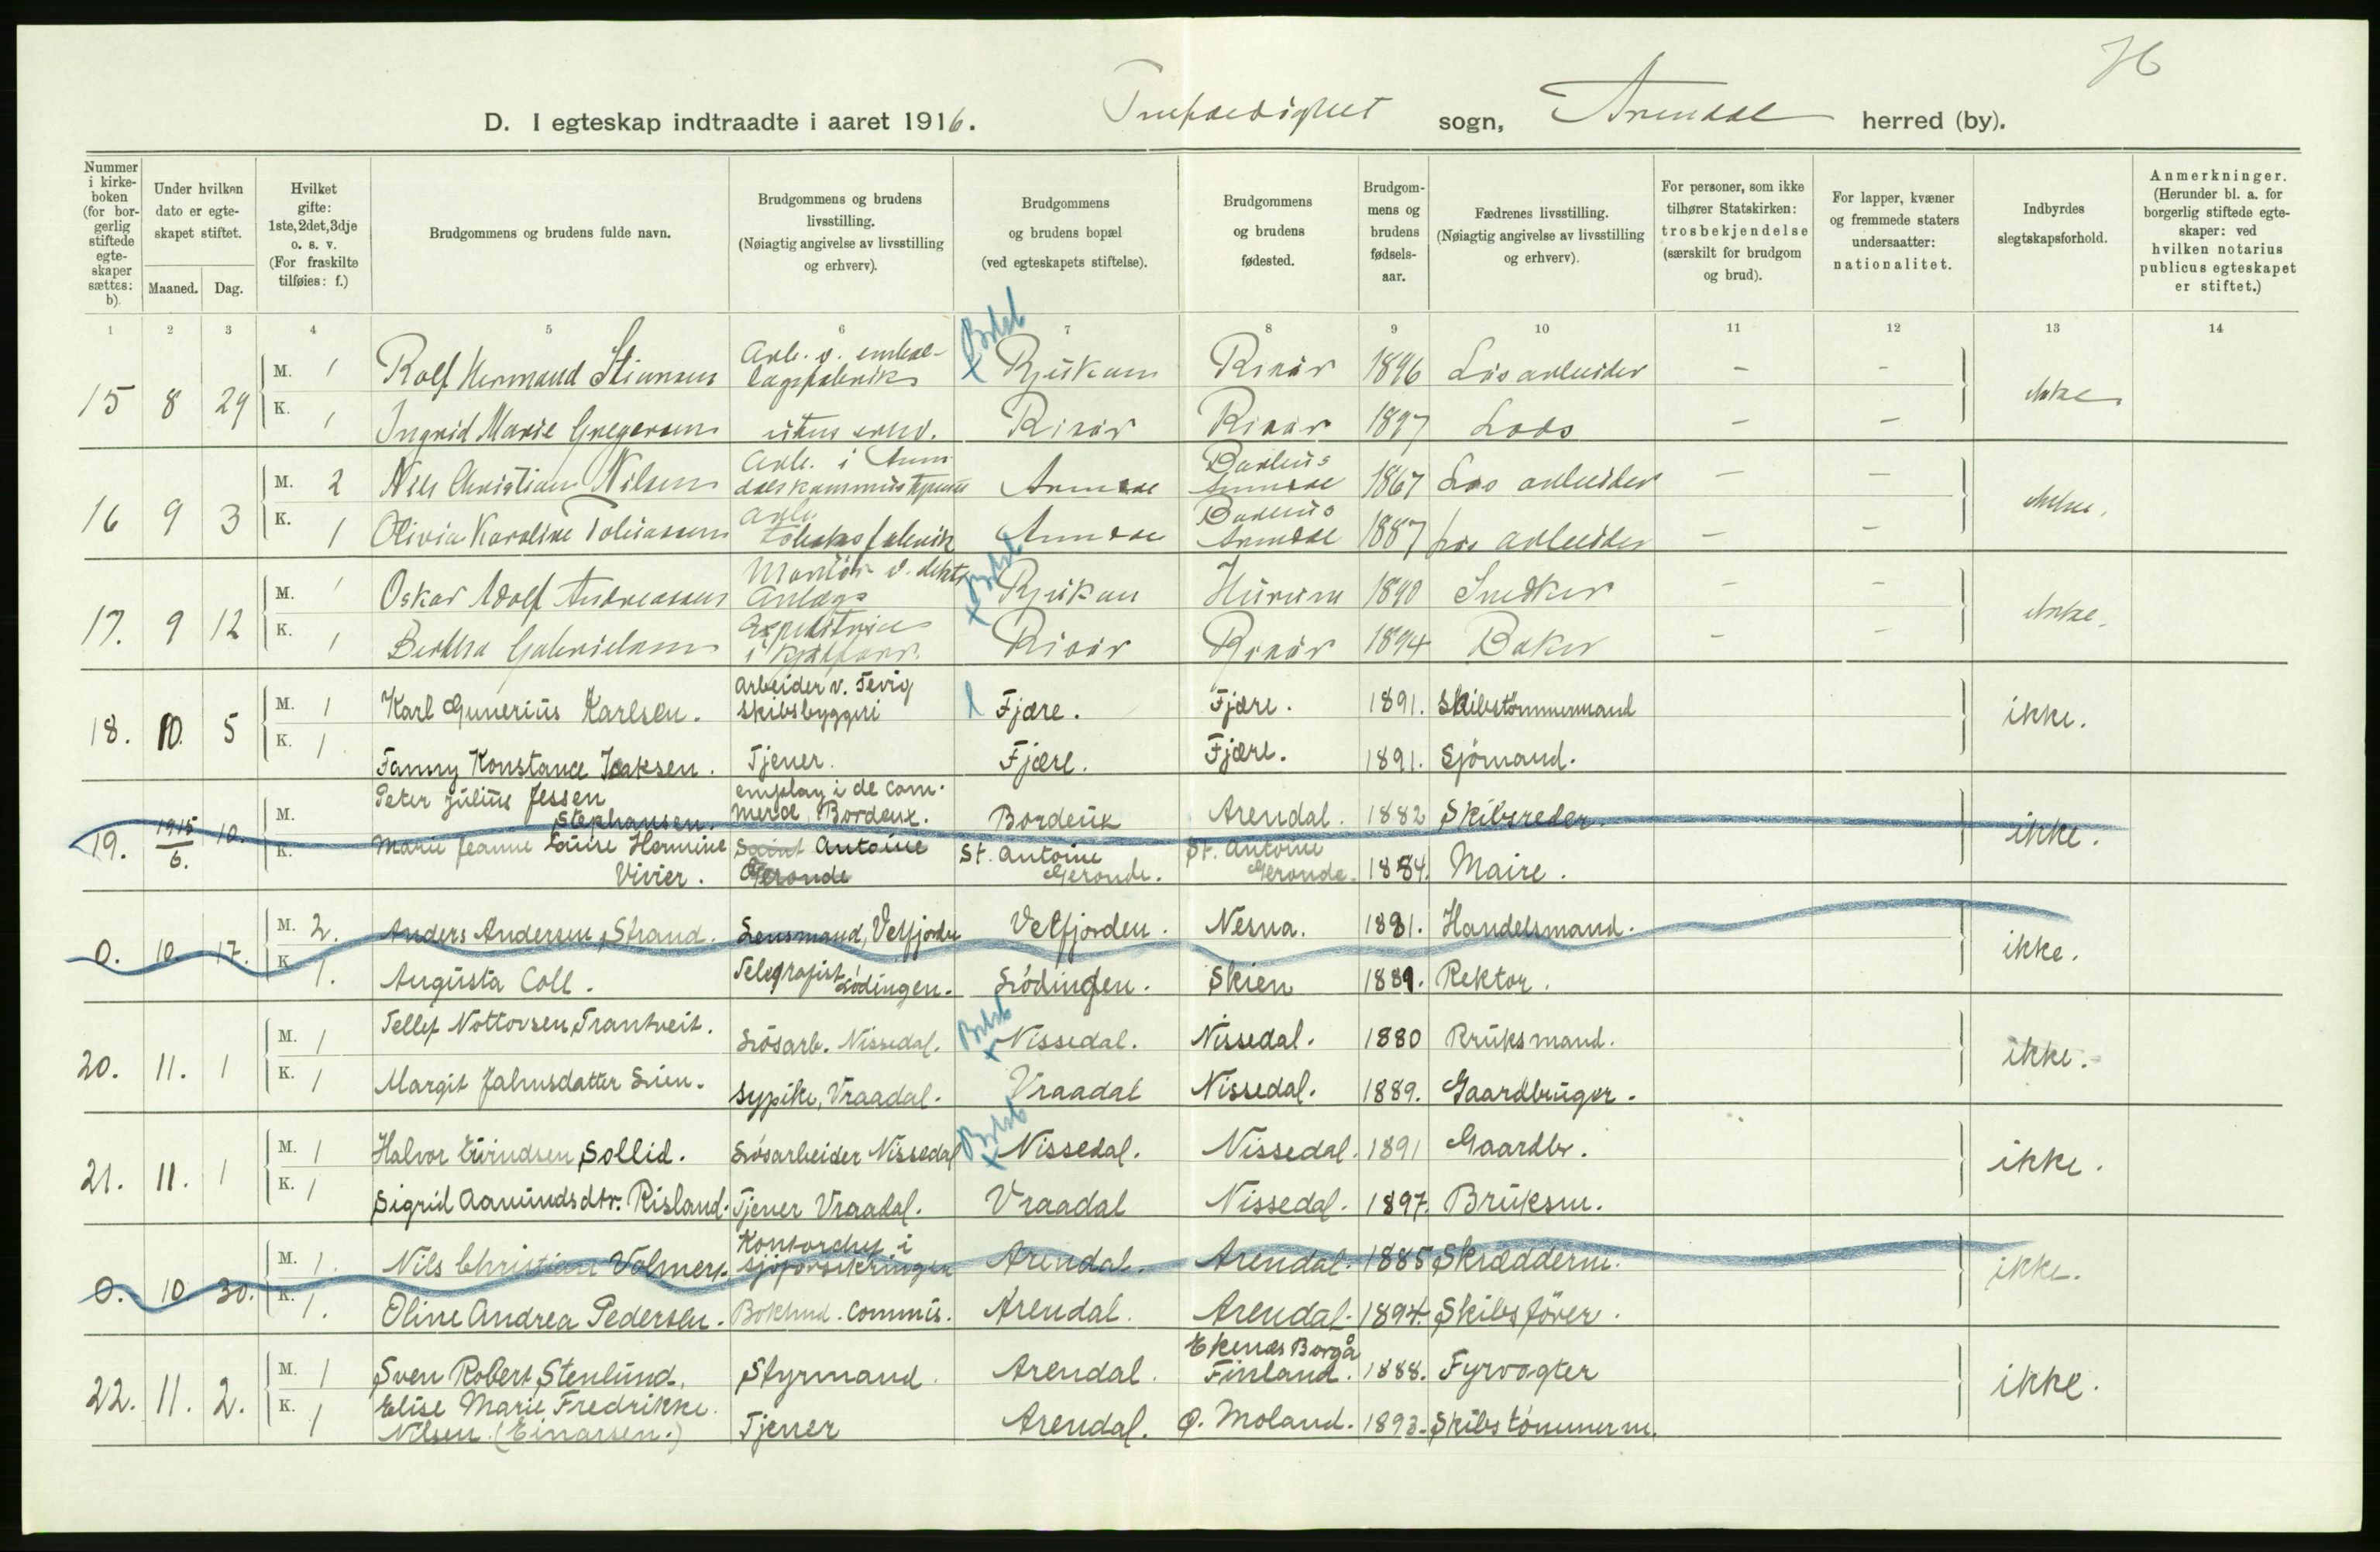 76
D. I egteskap indtraadte i aaret 1916. Trefoldighet sogn, Arendal herred (by).
Nummer i kirkeboken (for borgerlig stiftede egteskaper sættes: b).
Under hvilken dato er egteskapet stiftet.
Maaned. Dag.
Hvilket gifte: 1ste, 2det, 3dje o. s. v. (For fraskilte tilføies: f.)
Brudgommens og brudens fulde navn.
Brudgommens og brudens livsstilling. (Nøiagtig angivelse av livsstilling og erhverv).
Brudgommens og brudens bopæl (ved egteskapets stiftelse).
Brudgommens og brudens fødested.
Brudgommens og brudens fødselsaar.
Fædrenes livsstilling. (Nøiagtig angivelse av livsstilling og erhverv).
For personer, som ikke tilhører Statskirken: trosbekjendelse (særskilt for brudgom og brud).
For lapper, kvæner og fremmede staters undersaatter: nationalitet.
Indbyrdes slegtskapsforhold.
Anmerkninger. (Herunder bl. a. for borgerlig stiftede egteskaper: ved hvilken notarius publicus egteskapet er stiftet.)
1 2 3 4 5 6 7 8 9 10 11 12 13 14
15 8 29 M. 1 Rolf Hermand Stiansen Arb. v. embal-
lagefabrik Rjukan Risør 1896 Løsarbeider - - ikke
K. 1 Ingrid Marie Gregersen uten erhv. Risør Risør 1897 Lods - -
16 9 3 M. 2 Nils Christian Nilsen Arb. i Aren-
dals Arendal Barbu
Arendal 1867 Løs arbeider - - ikke.
K. 1 Olivia Karoline Tobiassen Arb.
tobaksfabrik Arendal Barbu
Arendal 1887 Løs arbeider - -
17. 9 12 M. 1 Oskar Adolf Andreassen Montør v. elektr.
Anlægg Rjukan Hurum 1890 Snedker - - ikke.
K. 1 Berthha Gabrielsen Expeditrice
i Risør Risør 1894 Baker - -
18. 10. 5 M. 1 Karl Gunerius Karlsen. Arbeider v. Fevig
skibsbyggeri Fjære. Fjære. 1891. Skibstømmermand ikke.
K. 1 Fanny Konstance Isaksen. Tjener. Fjære. Fjære. 1891. Sjömand.
19. 1915/6. 10. M. Peter Julius Jessen
Stephansen. employ i de com-
merce, Bordeux. Bordeux Arendal. 1882 Skibsreder. ikke.
K. Marie Jeanne Louise Hermine
Vivier. Saint Antoine
Geronde St. Antoine
Geronde. St. Antoine
Geronde. 1884. Maire.
0. 10. 17. M. 2. Anders Andersen Strand. Lensmand, Velfjorden Velfjorden. Nesna. 1881. Handelsmand. ikke.
K. 1. Augusta Coll. Telegrafist, Lödingen. Lödingen. Skien 1889. Rektor.
20. 11. 1 M. 1 Tellef Nottovsen Trantveit. Løsarb. Nissedal. Nissedal. Nissedal. 1880 Bruksmand. ikke.
K. 1 Margit Jahnsdatter Lien. Sypike, Vraadal. Vraadal Nissedal. 1889. Gaardbruger.
21. 11. 1 M. 1 Halvor Eivindsen Sollid. Løsarbeider Nissedal Nissedal. Nissedal. 1891 Gaardbr. ikke.
K. 1 Sigrid Aamundsdtr. Risland. Tjener Vraadal. Vraadal Nissedal. 1897. Bruksm.
0. 10. 30. M. 1. Nils Christian Volmers. Kontorchef i
sjöforsikringen Arendal. Arendal. 1885 Skrædderm. ikke.
K. 1. Oline Andrea Pedersen. Bokhnd. Commis. Arendal. Arendal. 1894. Skibsförer.
22. 11. 2. M. 1 Sven Robert Stenlund. Styrmand. Arendal. Ekenæs Borgå
Finland. 1888. Fyrvogter ikke.
K. 1 Elise Marie Fredrikke
Nilsen. (Einarsen.) Tjener Arendal. Ø. Moland. 1893. Skibstömmerm.